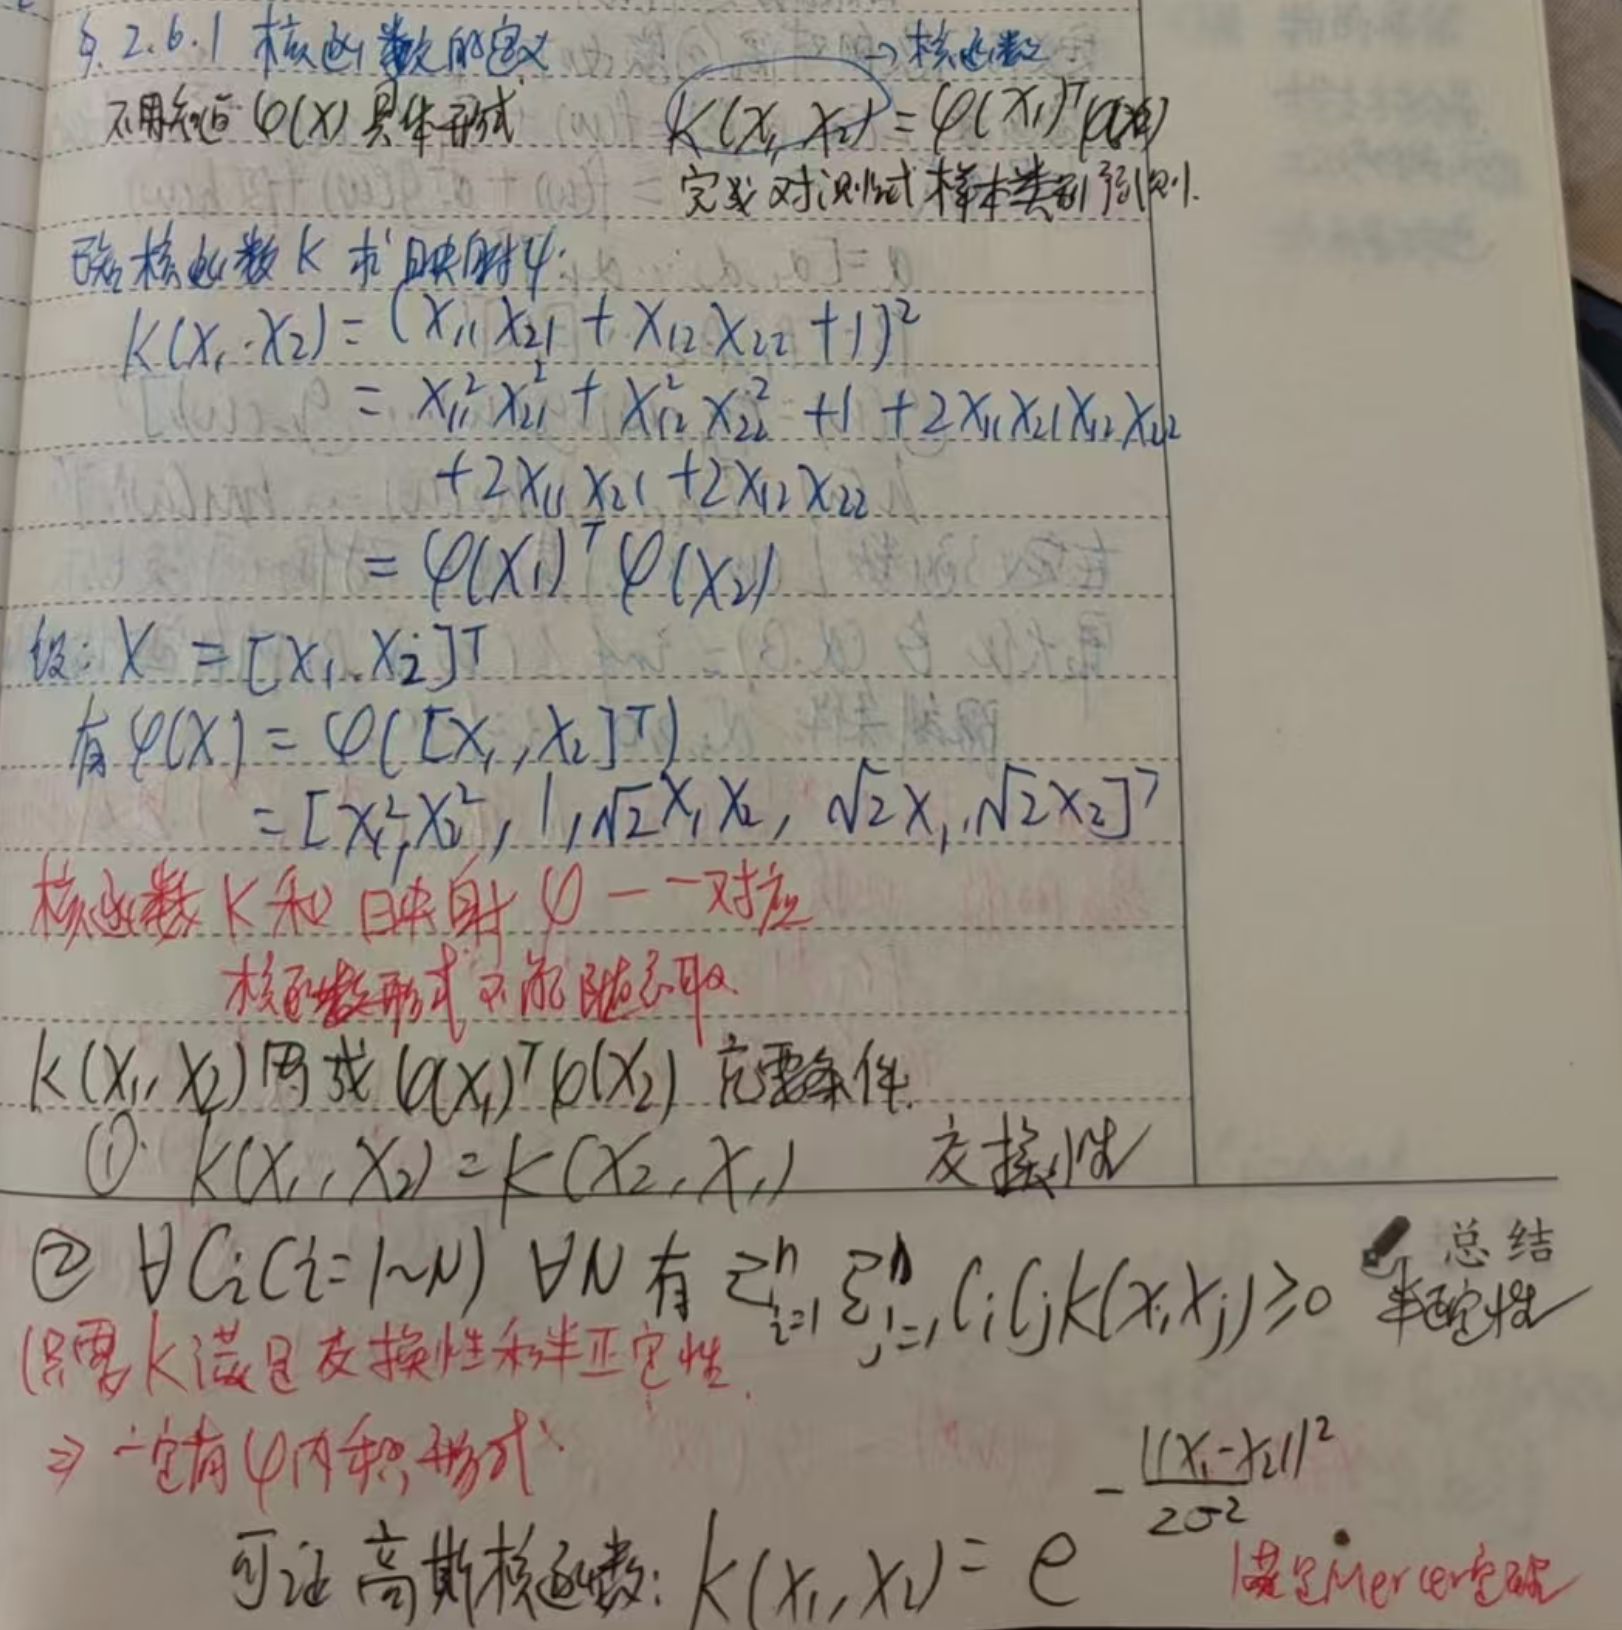 §.2.6.1 核函数的定义 → 核函数
不用知道 φ(X) 具体形式 K(X₁, X₂) = φ(X₁)ᵀφ(X₂)
完成对测试样本类别预测.
已知核函数 K 求映射 φ:
K(X₁·X₂) = (X₁₁X₂₁ + X₁₂X₂₂ + 1)²
= X₁₁²X₂₁² + X₁₂²X₂₂² + 1 + 2X₁₁X₂₁X₁₂X₂₂
+ 2X₁₁X₂₁ + 2X₁₂X₂₂
= φ(X₁)ᵀφ(X₂)
设: X = [X₁, X₂]ᵀ
有 φ(X) = φ([X₁, X₂]ᵀ)
= [X₁², X₂², 1, √2X₁X₂, √2X₁, √2X₂]ᵀ
核函数 K 和映射 φ 一一对应
核函数形式不能随意取.
K(X₁, X₂) 写成 φ(X₁)ᵀφ(X₂) 充要条件.
①. K(X₁, X₂) = K(X₂, X₁) 交换性
总结
② ∀Cᵢ(i=1~N) ∀N 有 Σⁿᵢ₌₁ Σⁿⱼ₌₁ CᵢCⱼK(Xᵢ,Xⱼ) ≥ 0 半正定性
只需 K 满足交换性和半正定性.
⇒ 一定有 φ 内积形式
可证高斯核函数: K(X₁, X₂) = e^(-||X₁-X₂||²/2σ²) 满足Mercer定理